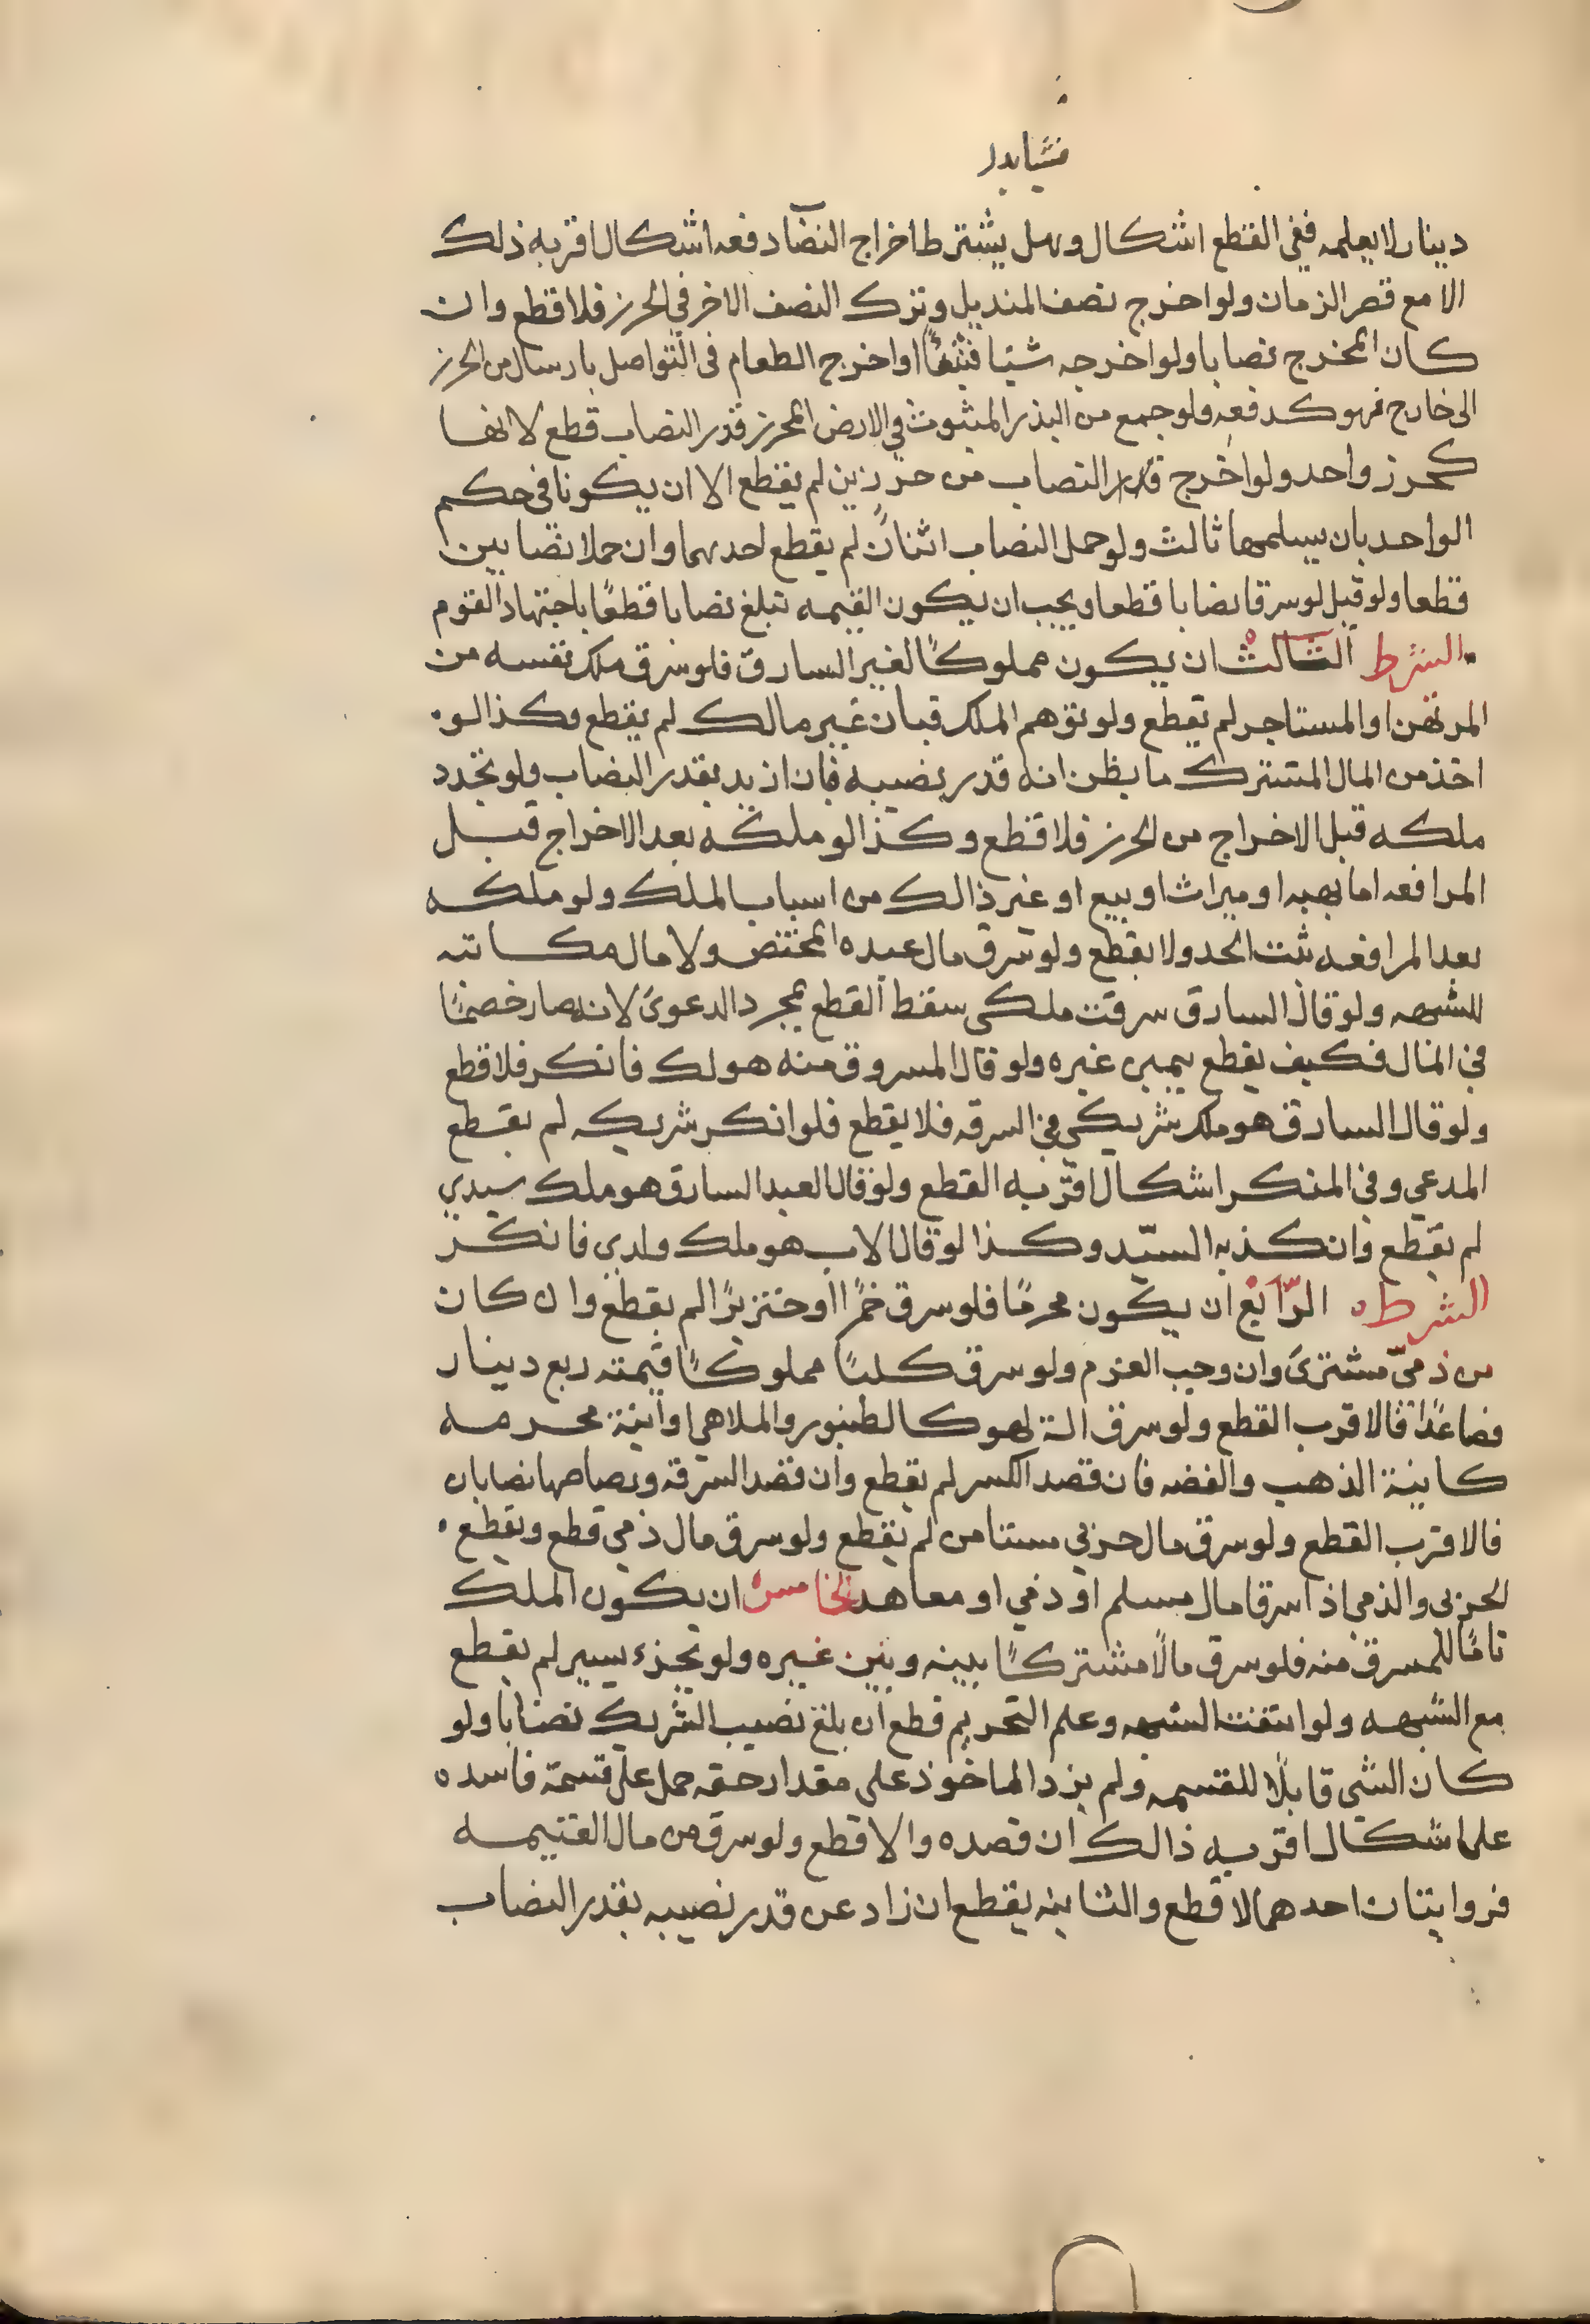 دينار لا يعلمه ففى القطع اشكال وهل يشترط اخراج النصاب دفعه اشكال اقربه ذلك
الا مع قصر الزمان ولو اخرج نصف المنديل وترك النصف الاخر فى الحرز فلا قطع وان
كان المخرج نصابا ولو اخرجه شيًا فشيًا او اخرج الطعام فى التواصل بارسال من الحرز
الى خارج فهو كدفعه ولو جمع من البذر المبثوث في الارض المحرز قدر النصاب قطع لانها
كحرز واحد ولو اخرج قدر النصاب من حرزين لم يقطع الا ان يكونا فى حكم
الواحد بان يسلمها ثالث ولو حمل النصاب اثنان لم يقطع احدهما وان حملا نصابين
قطعا ولو قيل لو سرقا نصابا قطعا ويجب ان يكون القيمه تبلغ نصابا قطعًا باجتهاد القوم
الشرط الثالث ان يكون مملوكًا لغير السارق فلو سرق ملك نفسه من
المرتهن او المستاجر لم يقطع ولو توهم الملك فبان غير مالك لم يقطع وكذا لو
اخذ من المال المشترك ما يظن انه قدر نصيبه فبان ازيد بقدر النصاب ولو تجدد
ملكه قبل الاخراج من الحرز فلا قطع وكذا لو ملكه بعد الاخراج قبل
المرافعه اما بهبه او ميراث او بيع او غير ذالك من اسباب الملك ولو ملكه
بعد المرافعه ثبت الحد ولا يقطع ولو سرق مال عبده المختص ولا مال مكاتبه
للشبهه ولو قال السارق سرقت ملكى سقط القطع بمجرد الدعوى لانه صار خصمًا
في المال فكيف يقطع بيمين غيره ولو قال المسروق منه هو لك فانكر فلا قطع
ولو قال السارق هو ملك شريكي في السرقه فلا يقطع فلو انكر شريكه لم يقطع
المدعي وفي المنكر اشكال اقربه القطع ولو قال العبد السارق هو ملك سيدي
لم يقطع وان كذبه السيّد وكذا لو قال الاب هو ملك ولدي فانكر
الشرط الرّابع ان يكون محرمًا فلو سرق خمرًا او خنزيرًا لم يقطع وان كان
من ذميّ مشترى وان وجب الغرم ولو سرق كلبًا مملوكًا قيمته ربع دينار
فصاعدًا فالاقرب القطع ولو سرق الة لهو كالطنبور والملاهي او انية محرمه
كانية الذهب والفضه فان قصد الكسر لم يقطع وان قصد السرقه ورصاصها نصابان
فالاقرب القطع ولو سرق مال حربي مستامن لم يقطع ولو سرق مال ذمي قطع ويقطع
الحربى والذمى اذا سرقا مال مسلم او ذمي او معاهد الخامس ان يكون الملك
تامًا للمسرق منه فلو سرق مالًا مشتركًا بينه وبين غيره ولو بجزء يسير لم يقطع
مع الشبهه ولو انتفت الشبهه وعلم التحريم قطع ان بلغ نصيب الشريك نصابا ولو
كان الشى قابلًا للقسمه ولم يزد الماخوذ على مقدار حقه حمل على قسمة فاسده
على اشكال اقربه ذالك ان قصده والا قطع ولو سرق من مال الغنيمه
فروايتان احدهما لا قطع والثانيه يقطع ان زاد عن قدر نصيبه بقدر النصاب